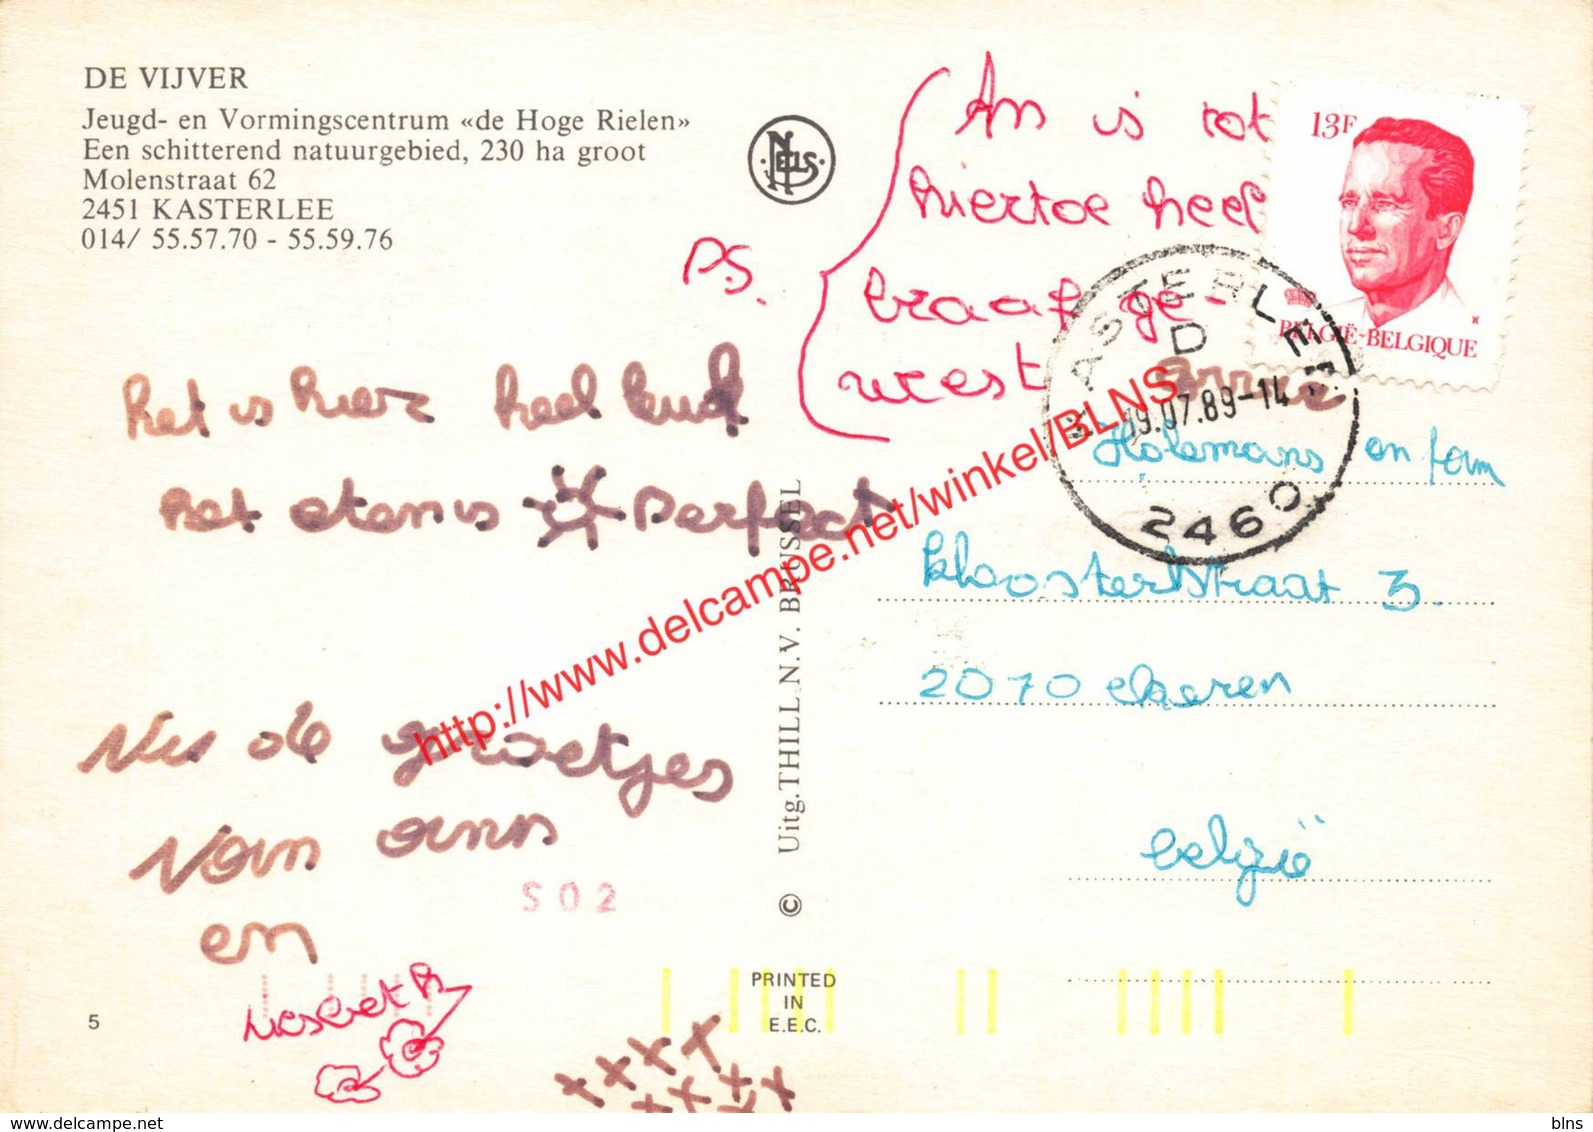 DE VIJVER
Jeugd- en Vormingscentrum «de Hoge Rielen»
Een schitterend natuurgebied, 230 ha groot
Molenstraat 62
2451 KASTERLEE
014/ 55.57.70 - 55.59.76
NELS
P.S.
An is tot
hiertoe heel
braaf ge-
weest
13F
BELGIË-BELGIQUE
KASTERLEE
D
19.07.89-14
2460
het is hier heel leuk
het eten is perfect
Vele de groetjes
Van ann
en
Liesbet
S02
Holemans en fam
kloosterstraat 3.
2070
België
Uitg. THILL N.V. BRUSSEL
©
PRINTED
IN
E.E.C.
5
http://www.delcampe.net/winkel/BLNS
www.delcampe.net
blns